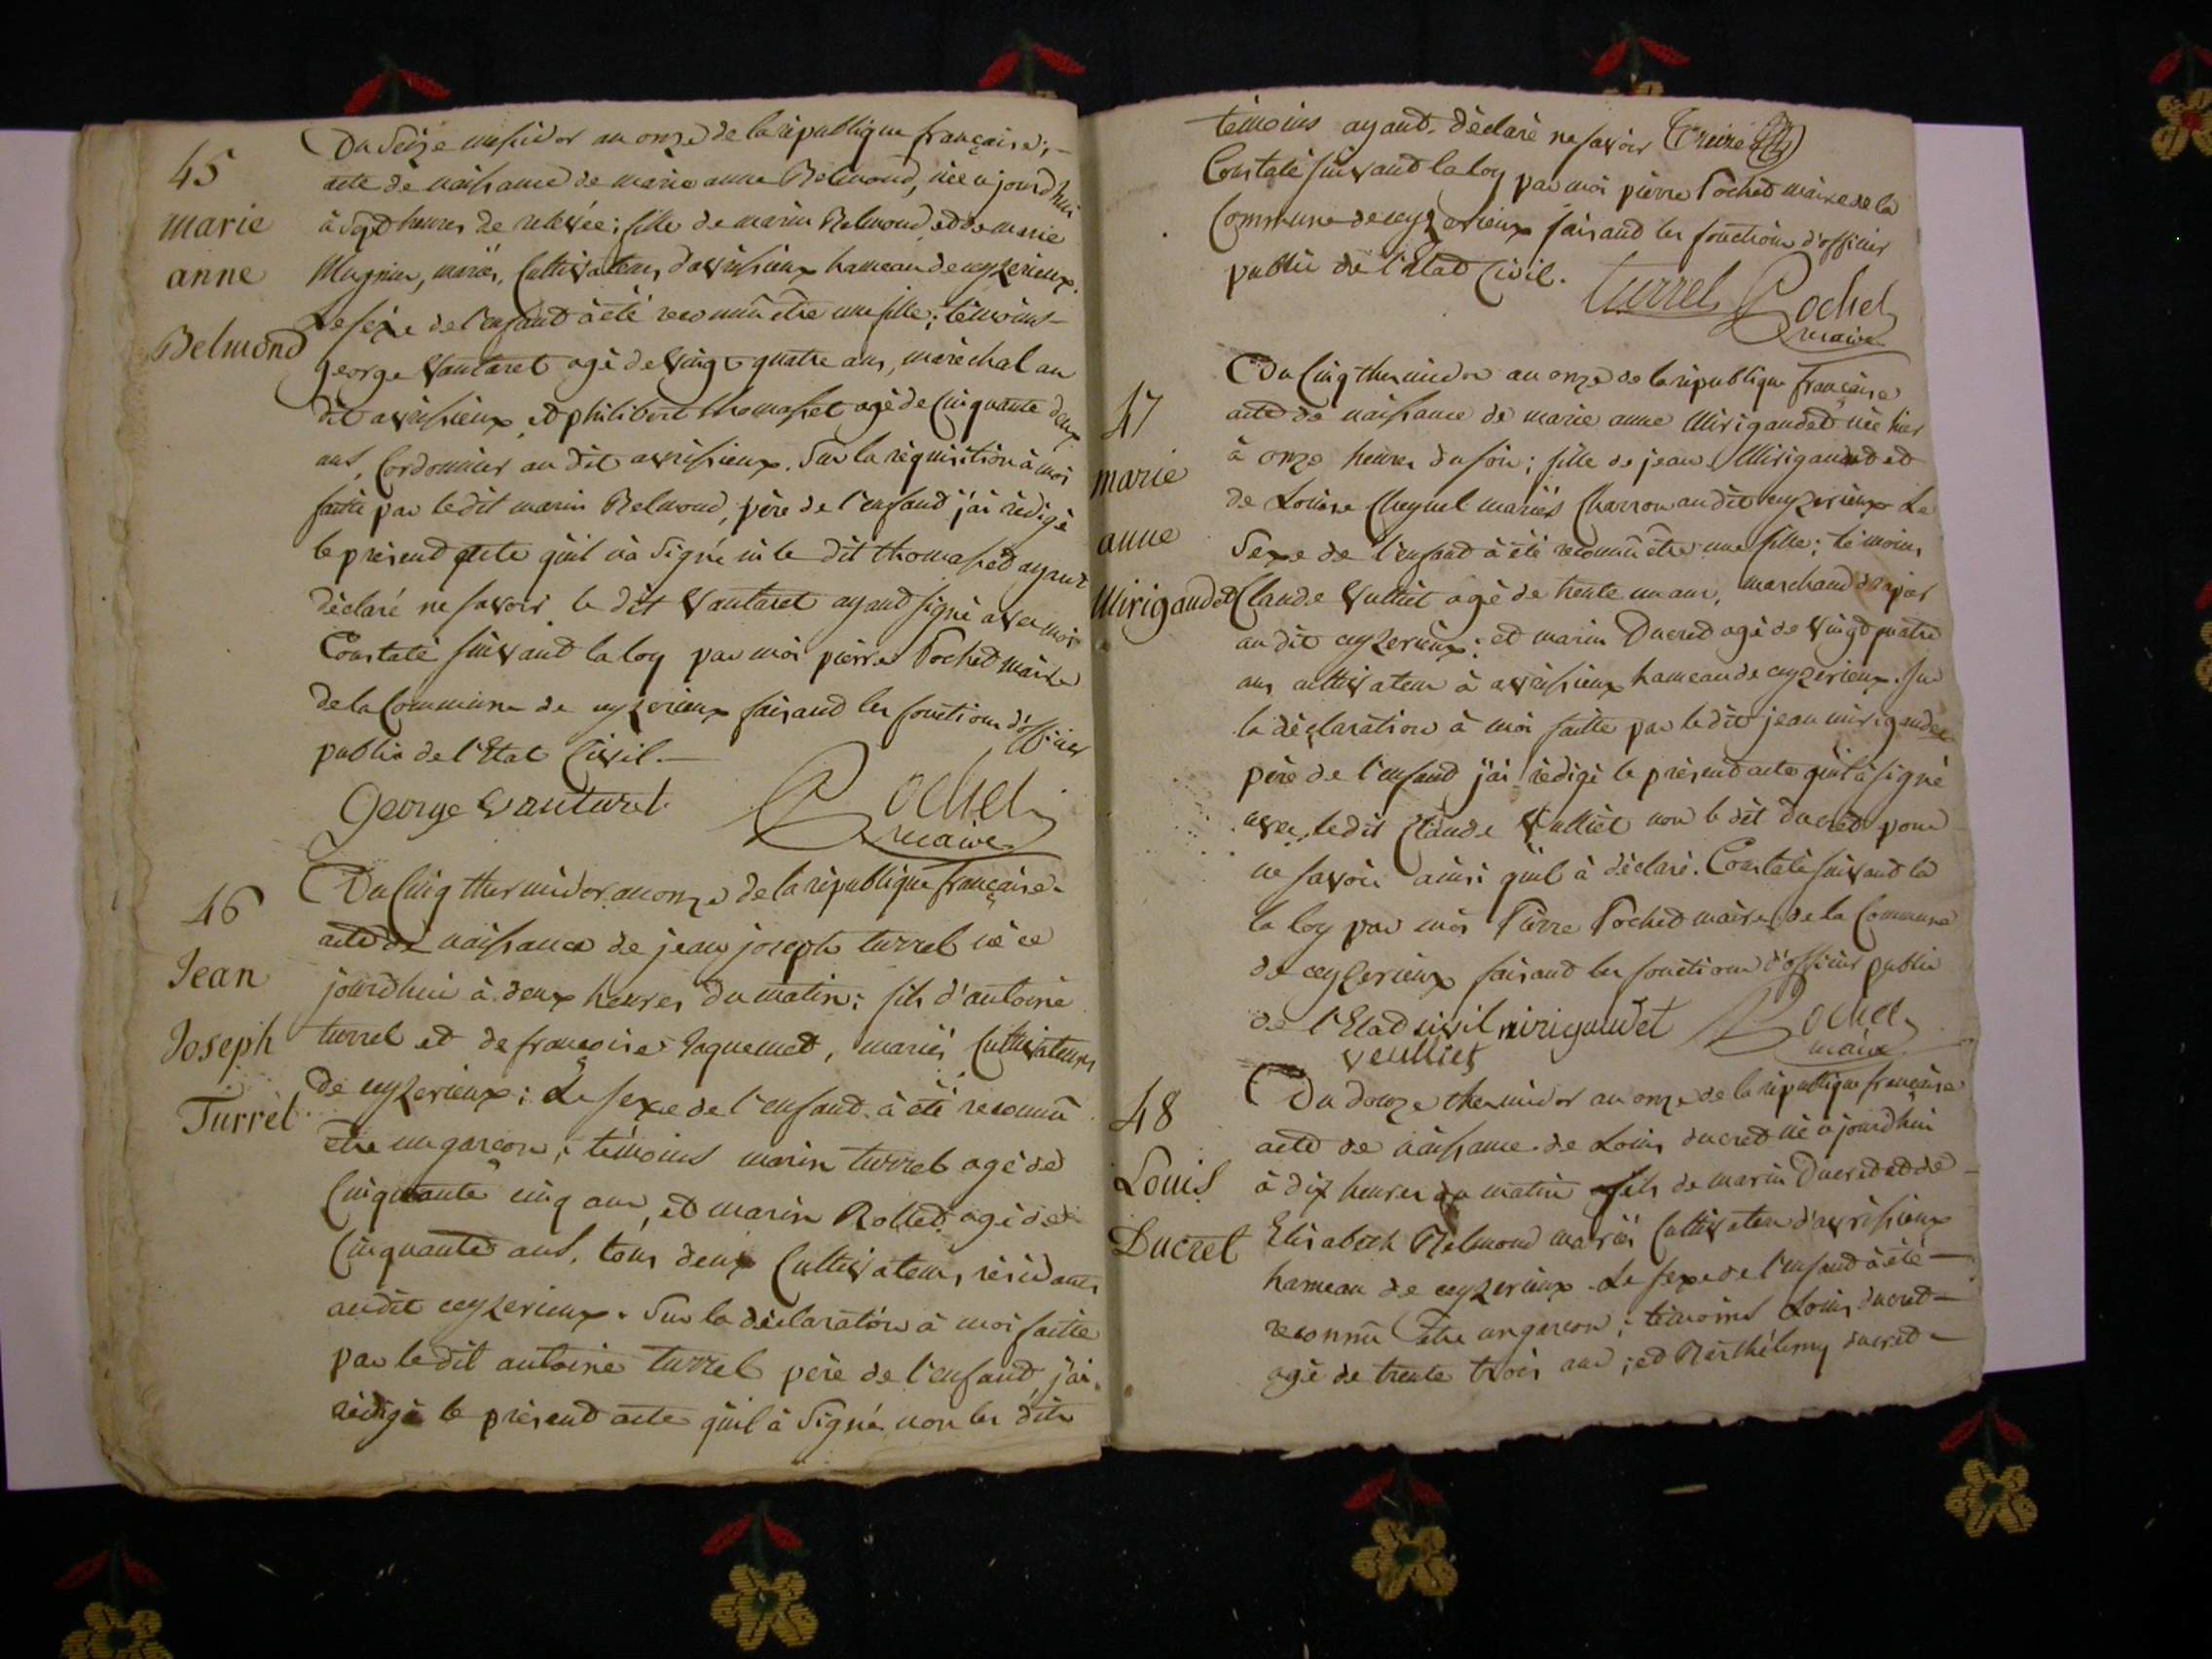 45
marie
anne
Belmond
Du Seize messidor an onze de la république française;
acte de naissance de marie anne Belmond, née ajourdhui
à sept heures de relevée; fille de marin Belmond et de marie
Magnin, mariés, Cultivateurs d'avrissieux hameau de ceyzerieux.
Le sexe de l'enfant à été reconnû être une fille; témoins
george Vautaret agé de vingt quatre ans, maréchal au
dit avrissieux, et philibert thomasset agé de Cinquante deux
ans, Cordonnier au dit avrissieux. Sur la réquisition à moi
faitte par ledit marin Belmond, père de l'enfant j'ai rédigé
le présent acte qu'il n'a Signé ni le dit thomasset ayant
déclaré ne savoir, le dit Vautaret ayant signé avec moi
Constaté suivant la loy par moi pierre Pochet maire
de la Commune de ceyzerieux faisant les fonctions d'officier
public de l'Etat Civil.
George Vautaret Pochet
maire
46
Jean
Joseph
Turrèl
Du Cinq thermidor an onze de la république française.
acte de naissance de jean joseph turrel né ce
jourdhui à deux heures du matin; fils d'antoine
turrel et de françoise Jaquemet, mariés Cultivateurs
de ceyzerieux; Le sexe de l'enfant à été reconnû
être un garçon; témoins marin turrel agé de
Cinquante cinq ans, et marin Rollet agé de
Cinquante ans, tous deux Cultivateurs résidants
audit ceyzerieux. Sur la déclaration à moi faitte
par le dit antoine turrel père de l'enfant, j'ai
rédigé le présent acte qu'il à Signé non les dits
témoins ayant déclaré ne savoir
Constaté suivant la loy par moi pierre Pochet maire de la
Commune de ceyzerieux faisant les fonctions d'officier
public de l'Etat Civil.
turrel Pochet
maire
47
marie
anne
Mirigaudet
Du Cinq thermidor an onze de la république française
acte de naissance de marie anne Mirigaudet née hier
à onze heures du soir; fille de jean Mirigaudet et
de Louise Cheynel mariés Charron audit ceyzerieux Le
Sexe de l'enfant à été reconnû être une fille; témoins
Claude Vulliet agé de trente un ans, marchand drapier
au dit ceyzerieux; et marin Ducret agé de vingt quatre
ans cultivateur à avrissieux hameau de ceyzerieux. Sur
la déclaration à moi faitte par le dit jean mirigaudet
père de l'enfant j'ai rédigé le présent acte qu'il à signé
avec le dit Claude Vulliet non le dit ducret pour
ne savoir ainsi qu'il à déclaré. Constaté suivant la
la loy par moi Pierre Pochet maire de la Commune
de ceyzerieux faisant les fonctions d'officier public
de l'Etat civil mirigaudet Pochet
veulliet maire
48
Louis
Ducret
Du douze thermidor an onze de la république française
acte de naissance de Louis ducret né ajourdhui
à dix heures du matin fils de marin Ducret et de
Elisabeth Belmond mariés Cultivateur d'avrissieux
hameau de ceyzerieux. Le sexe de l'enfant à été
reconnu être un garçon; témoins Louis ducret
agé de trente trois ans; et Barthélemy ducret